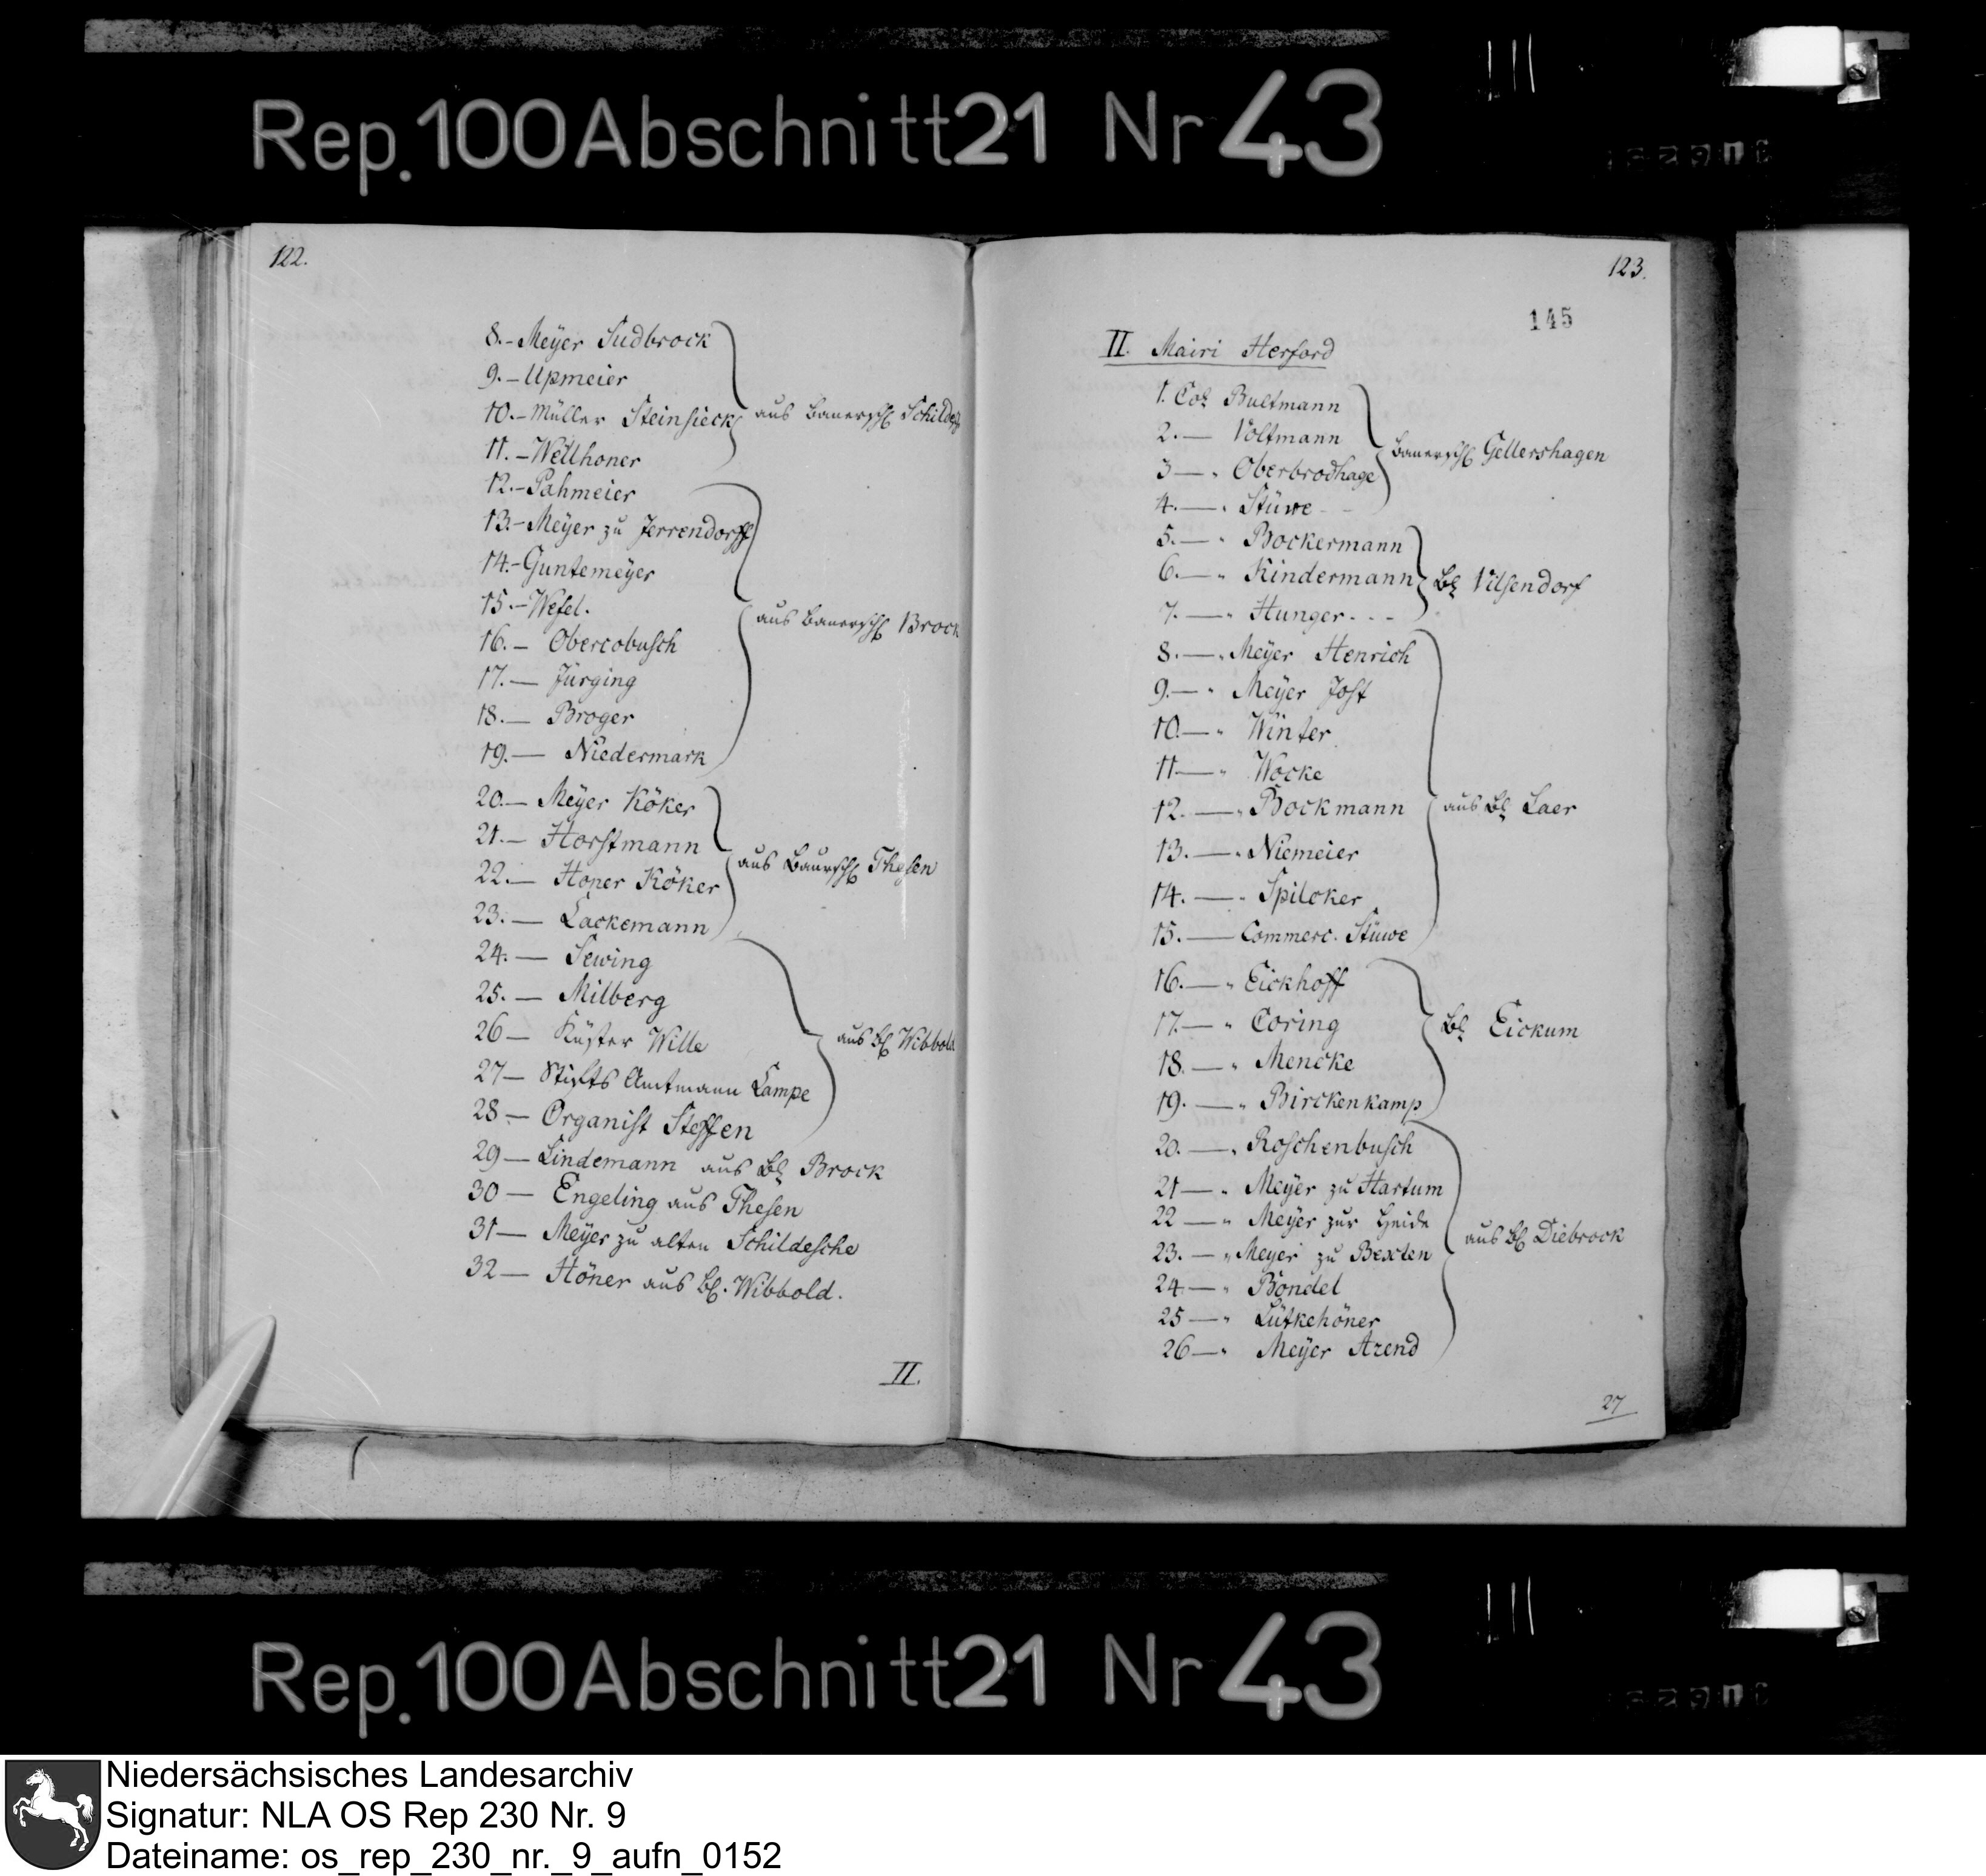 Rep. 100 Abschnitt 21 Nr 43
122.
8.- Meÿer Sudbrock
9.- Upmeier
10.- Müller Steinsieck
aus Bauersch
11.- Wellhoner
12.- Pahmeier
13.- Meÿer zu Jerrendorff
14.- Guntemeÿer
15.- Wefel.
aus Bauersch Brock
16.- Obercobusch
17.- Jürging
18.- Broger
19.- Niedermark
20.- Meÿer Köker
21.- Horstmann
22.- Honer Köker
aus Baursch Thesen
23.- Lackemann
24.- Sewing
25.- Milberg
26- Küster Wille
aus Bs Wibbold
27- Stifts Amtmann Lampe
28- Organist Steffen
29- Lindemann aus Bs Brock
30- Engeling aus Thesen
31- Meÿer zu alten Schildesche
32- Höner aus Bs. Wibbold.
II.
123.
145
II. Mairi Herford
1. Col Bultmann
2.- Voltmann
Bauersch Gellershagen
3-" Oberbrodhage
4.-" Stüwe - -
5.-" Bockermann
6.-" Kindermann
Bs Vilsendorf
7.-" Hunger - - -
8.-" Meÿer Henrich
9.-" Meÿer Jost
10.-" Winter
11-" Wocke
12.-" Bockmann
aus Bs Laer
13.-" Niemeier
14.-" Spilcker
15.- Commerc. Stüwe
16.-" Eickhoff
17.-" Coring
Bs Eickum
18.-" Mencke
19.-" Birckenkamp
20.-" Roschenbusch
21-" Meÿer zu Hartum
22-" Meÿer zur Heide
aus Bs Diebrock
23.-" Meÿer zu Bexten
24-" Böndel
25-" Lütkehöner
26-" Meÿer Arend
27
Rep. 100 Abschnitt 21 Nr 43
Niedersächsisches Landesarchiv
Signatur: NLA OS Rep 230 Nr. 9
Dateiname: os_rep_230_nr._9_aufn_0152